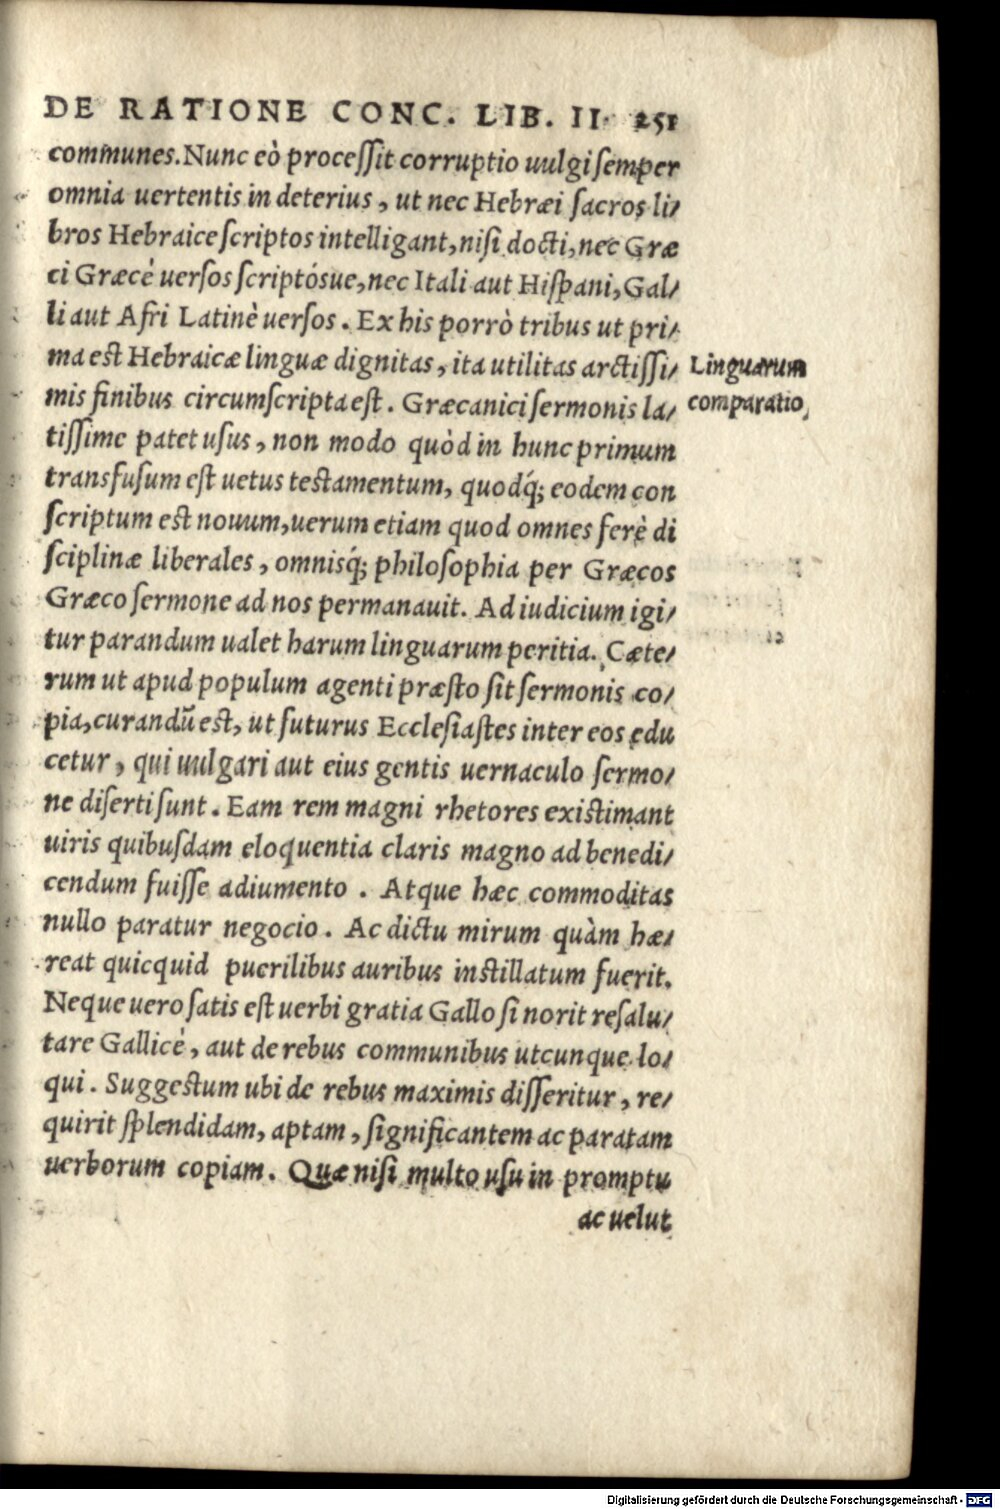 DE RATIONE CONC. LIB. II. 251
communes. Nunc eò processit corruptio uulgi semper
omnia uertentis in deterius, ut nec Hebræi sacros li/
bros Hebraice scriptos intelligant, nisi docti, nec Græ
ci Græcè uersos scriptósue, nec Itali aut Hispani, Gal/
li aut Afri Latinè uersos. Ex his porrò tribus ut pri/
ma est Hebraicæ linguæ dignitas, ita utilitas arctissi/
mis finibus circumscripta est. Græcanici sermonis la/
tissime patet usus, non modo quòd in hunc primum
transfusum est uetus testamentum, quodq́; eodem con
scriptum est nouum, uerum etiam quod omnes ferè di
sciplinæ liberales, omnisq́; philosophia per Græcos
Græco sermone ad nos permanauit. Ad iudicium igi/
tur parandum ualet harum linguarum peritia. Cæte/
rum ut apud populum agenti præsto sit sermonis co/
pia, curandũ est, ut futurus Ecclesiastes inter eos edu
cetur, qui uulgari aut eius gentis uernaculo sermo/
ne diserti sunt. Eam rem magni rhetores existimant
uiris quibusdam eloquentia claris magno ad benedi/
cendum fuisse adiumento. Atque hæc commoditas
nullo paratur negocio. Ac dictu mirum quàm hæ/
reat quicquid puerilibus auribus instillatum fuerit.
Neque uero satis est uerbi gratia Gallo si norit resalu/
tare Gallicè, aut de rebus communibus utcunque lo/
qui. Suggestum ubi de rebus maximis disseritur, re/
quirit splendidam, aptam, significantem ac paratam
uerborum copiam. Quæ nisi multo usu in promptu
ac uelut
Linguarum
comparatio,
Digitalisierung gefördert durch die Deutsche Forschungsgemeinschaft - DFG